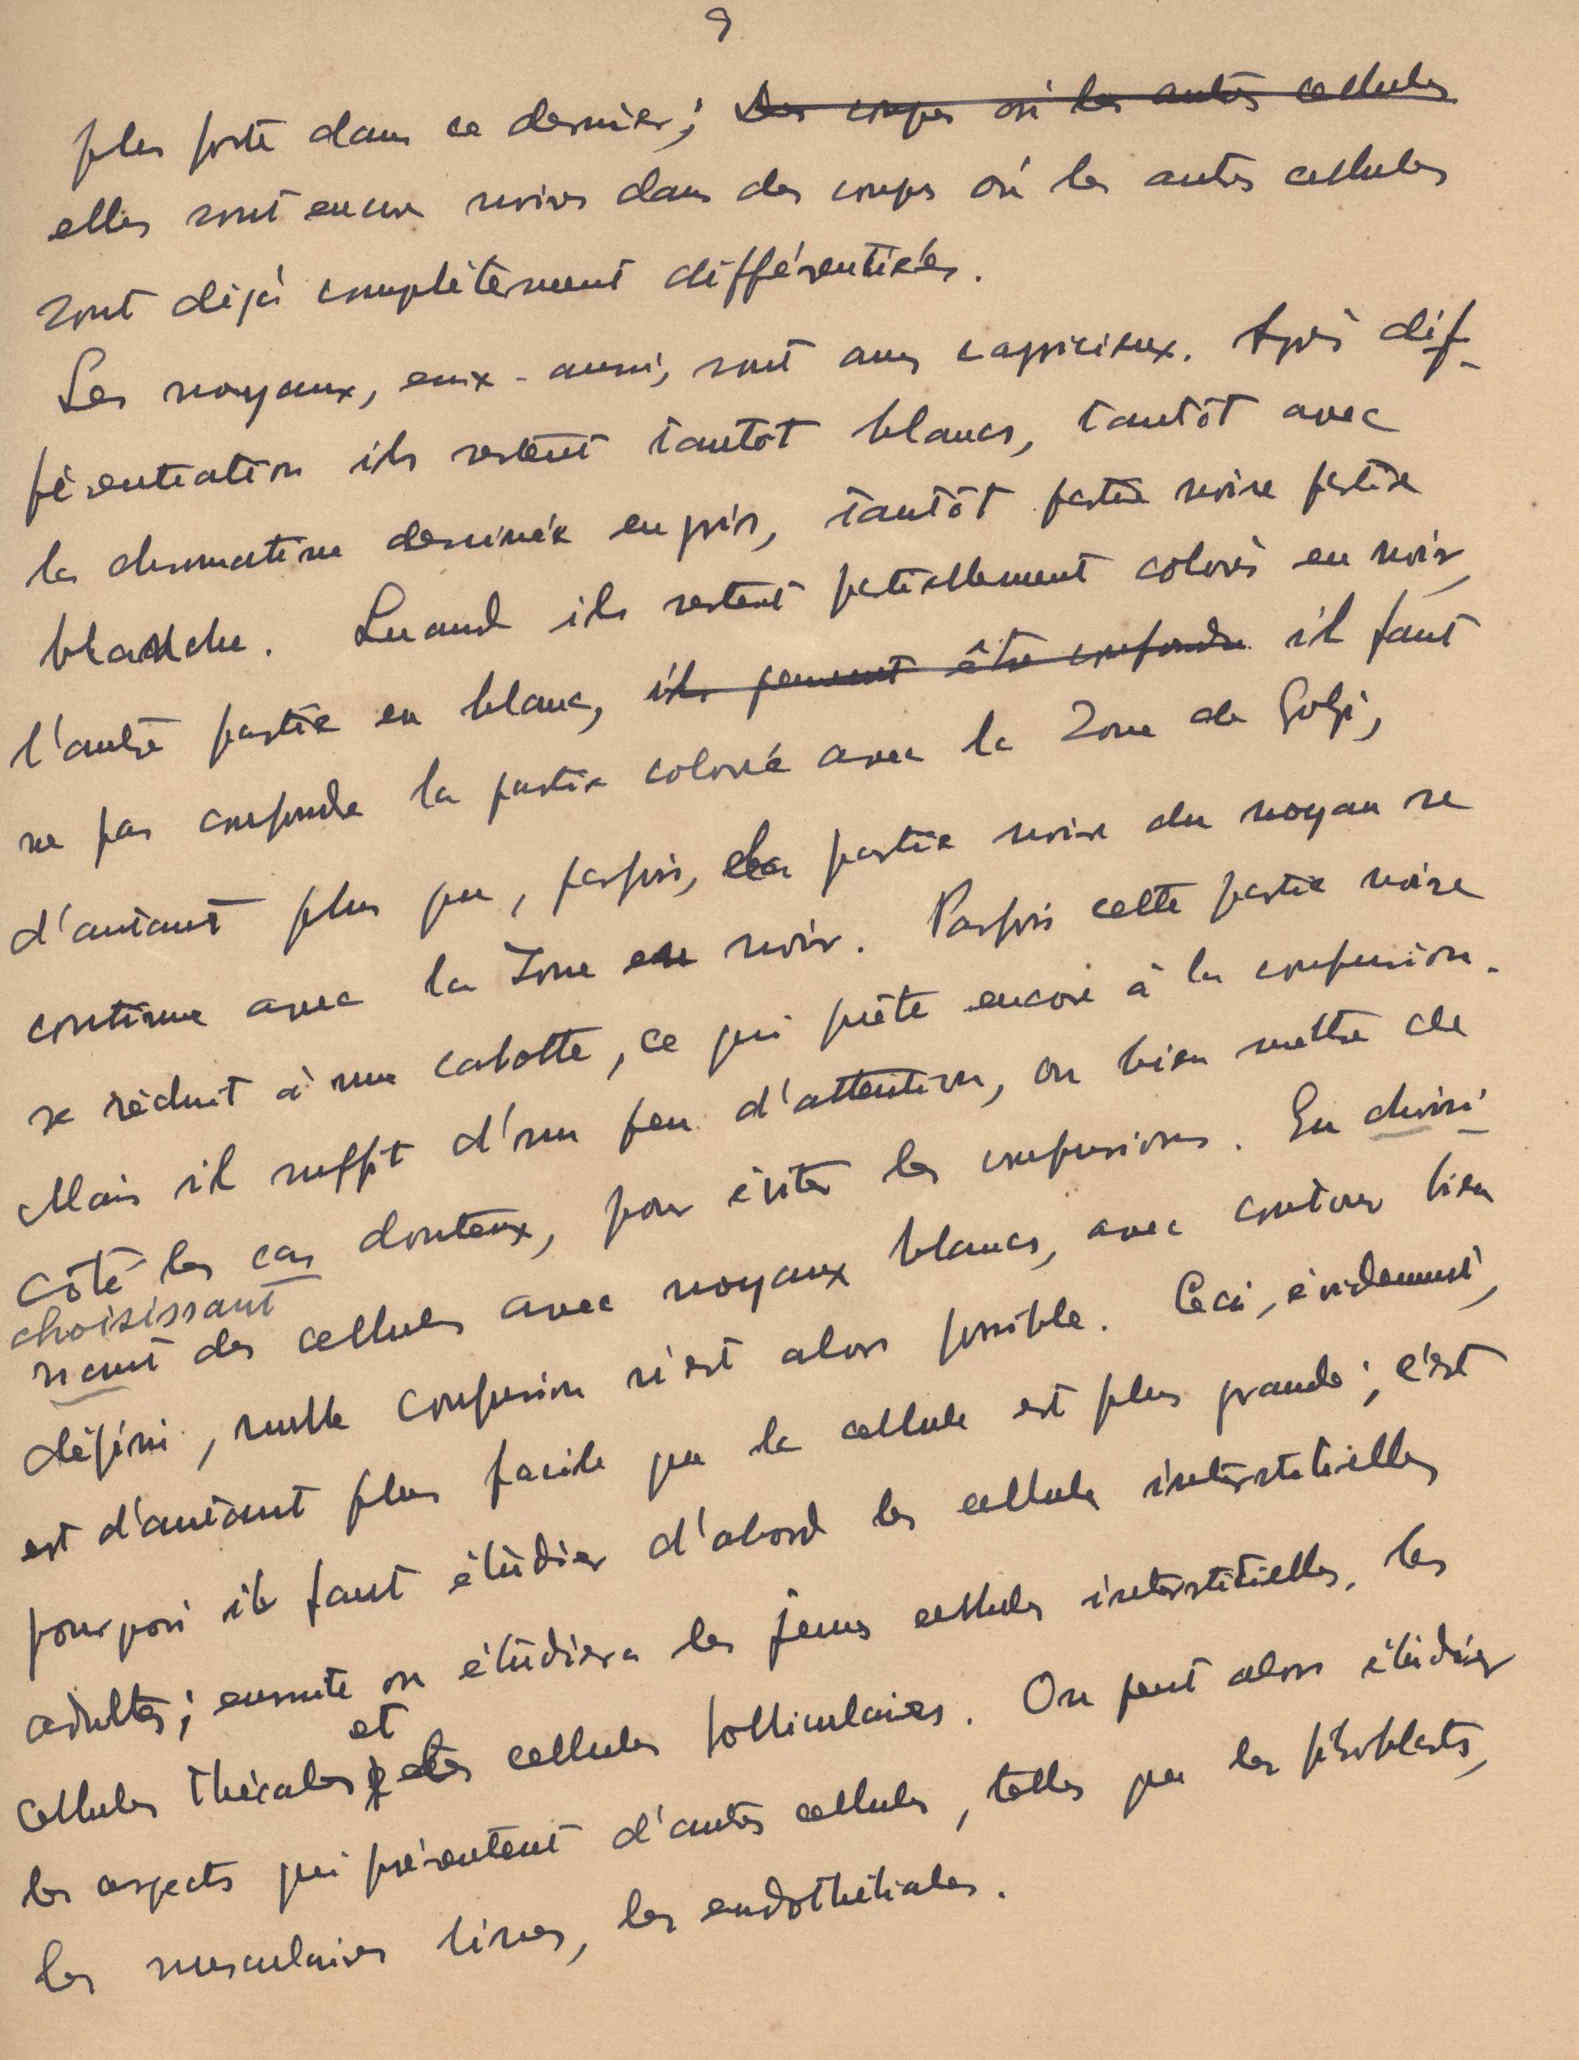 9
plus forte dans ce dernier; des coupes où les autres cellules
elles sont encore noires dans des coupes où les autres cellules
sont déjà complètement différentiées.
Les noyaux, eux-aussi, sont assez capricieux. Après dif-
férentiation ils restent tantôt blancs, tantôt avec
la chromatine dessinée en gris, tantôt partie noire partie
blanche. Quand ils restent partiellement colorés en noir,
l'autre partie en blanc, ils peuvent être confondu il faut
ne pas confondre la partie colorée avec la zone de Golgi,
d'autant plus que, parfois, la partie noire du noyau se
continue avec la zone en noir. Parfois cette partie noire
se réduit à une calotte, ce qui prête encore à la confusion.
Mais il suffit d'un peu d'attention, ou bien mettre de
côté les cas douteux, pour éviter les confusions. En choisi
choisissant
sant des cellules avec noyaux blancs, avec contour bien
défini, nulle confusion n'est alors possible. Ceci, évidemment,
est d'autant plus facile que la cellule est plus grande; c'est
pourquoi il faut étudier d'abord les cellules interstitielles
adultes; ensuite on étudiera les jeunes cellules interstitielles, les
et
cellules thécales les cellules folliculaires. On peut alors étudier
les aspects qui présentent d'autres cellules, telles que les fibroblasts,
les musculaires lisses, les endothéliales.